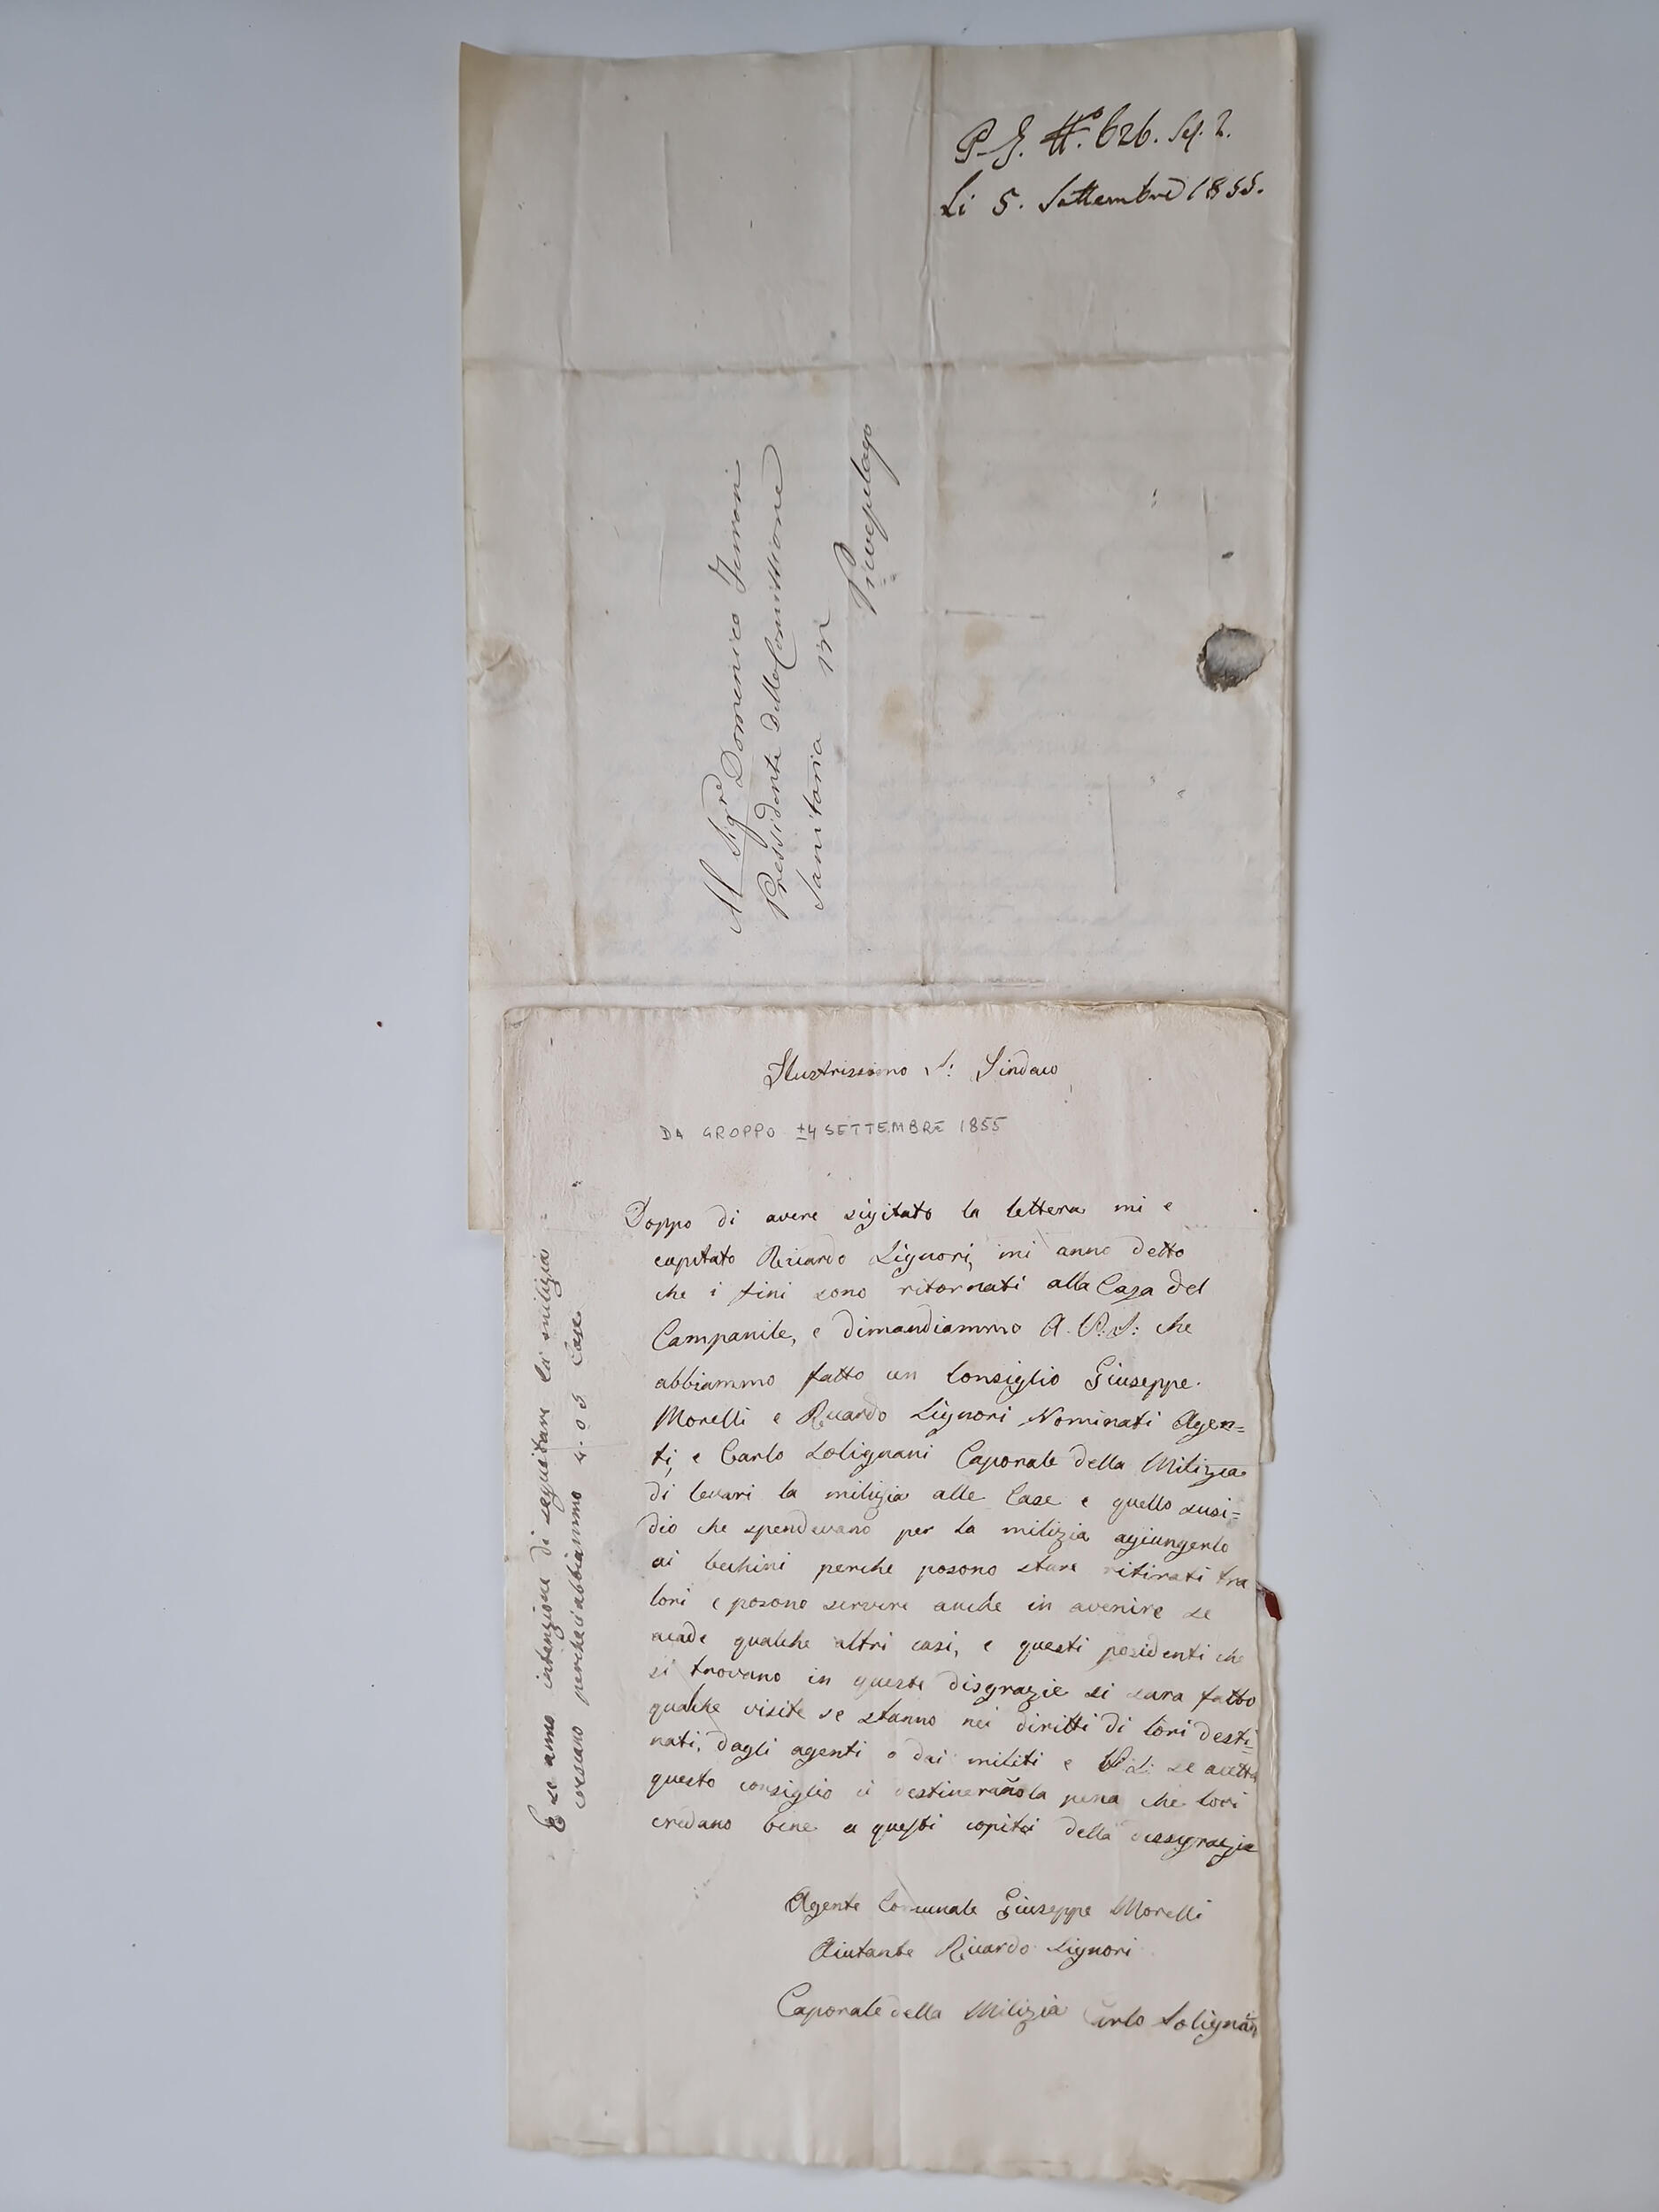 P. G. N.° 626. Sez. 2.
Li 5. Settembre 1855.
Al Sigre Domenico
Pressidente della Comissione
Sanitaria in
Pievepelago
Ilustrissimo S: Sindaco
DA GROPPO ±4 SETTEMBRE 1855
Doppo di avere sigitato la lettera mi e
capitato Ricardo Lignori, mi anno detto
che i fini sono ritornati alla Casa del
Campanile, e dimandiammo A. V: S: che
abbiammo fatto un Consiglio Giuseppe
Morelli e Ricardo Lignori Nominati Agen=
ti, e Carlo Solignani Caporale della Milizia
di levari la milizia alle Case e quello susi=
dio che spendevano per la milizia agiungerlo
ai bechini perche posono stare ritirati tra
lori e posono servire anche in avenire se
acade qualche altri casi, e questi posidenti che
si trovano in queste disgrazie si sara fatto
qualche visite se stanno nei diritti di lori desti=
nati, dagli agenti o dai militi e V: S: se acetta
questo consiglio ci destinerano la pena che lori
credano bene a questi copiti della dissgrazia
Agente Comunale Giuseppe Morelli
Aiutante Ricardo Lignori
Caporale della Milizia Carlo Solignani
E se anno intenzione di seguitare la milizia
crescano perche ci abbiammo 4. o 5 Case